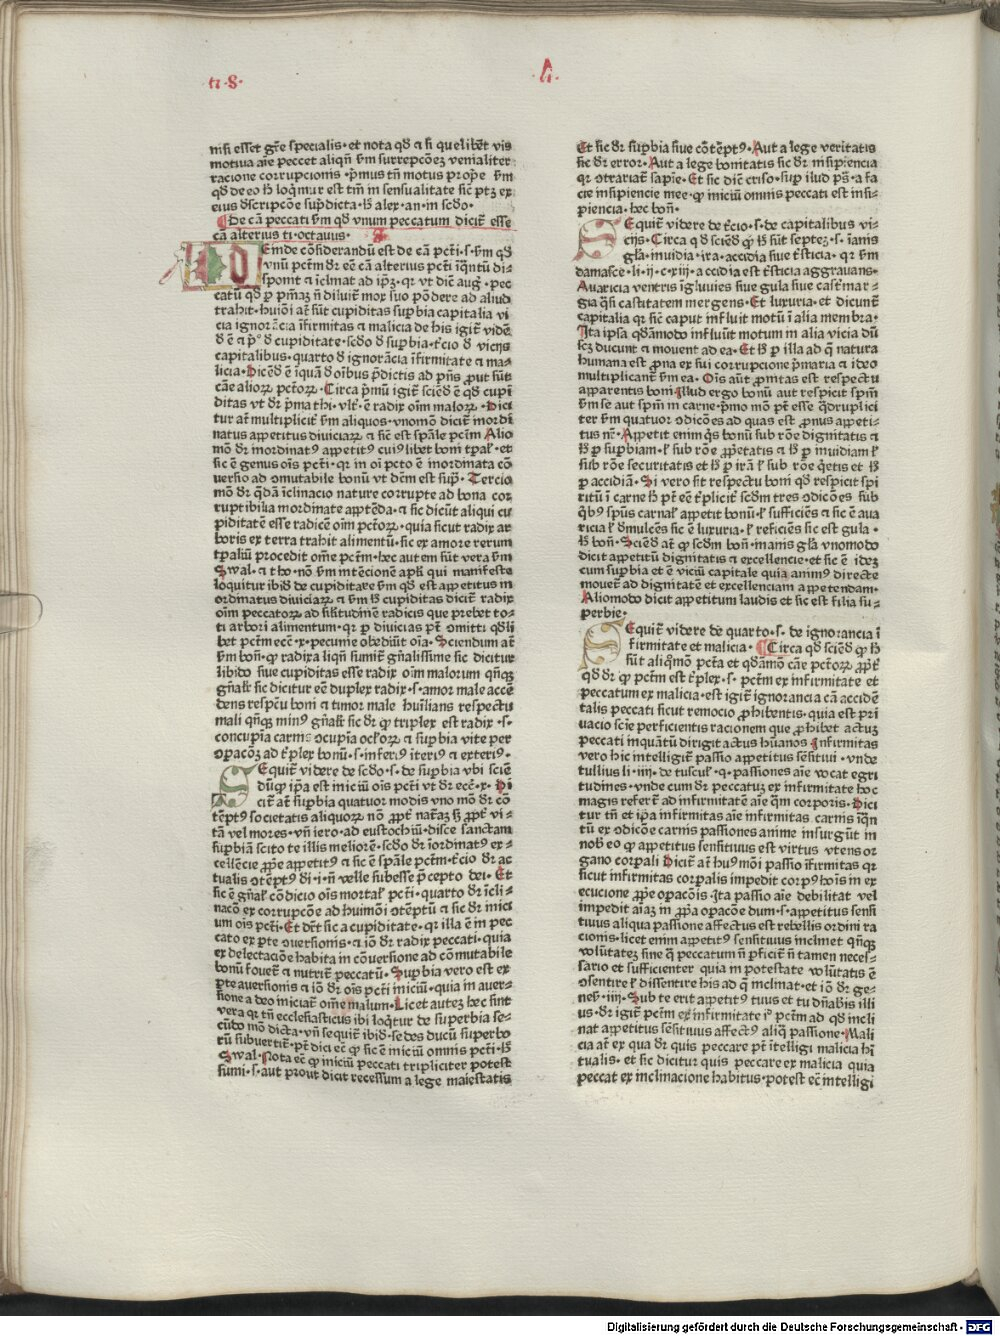 ti·8·
li·
nisi esset grē specialis·et nota qđ a si quelibet vis
motiua aīe peccet aliqñ ẜm surrepcōeʒ venialiter
racione corrupcionis ·p̄mus tñ motus prop̄e ẜm
qđ de eo ħ loq̄mur est tm̄ in sensualitate sic ptʒ ex
eius dscripcōe sup̄dicta·ħ alex·an·in scđo·
De cā peccati ẜm qđ vnum peccatum dicit᷑ esse
cā alterius ti·octauus·
DEinde cōsiderandū est de cā pcti·s·ẜm qđ
vnū pctm̄ dr̄ eē cā alterius pcti īqntū di-
sponit ⁊ īclinat ad ip̄ʒ·qr vt diē aug·pec
catū qđ p pñiaʒ ñ diluit᷑ mox suo pōdere ad aliud
trahit·huiōi at̄ sūt cupiditas supbia capitalia vi
cia ignorācia īfirmitas ⁊ malicia de his igit᷑ vidē
đ ē ⁊ p̄º đ cupiditate·scđo đ supbia·t̄cio đ vicijs
capitalibus·quarto đ ignorācia īfirmitate ⁊ ma-
licia·Dicēđ ē īquā đ oībus p̄dictis ad p̄ns prout sūt
cāe alioꝝ pctoꝝ·Circa p̄mū igit᷑ sciēđ ē qđ cupi
ditas vt dr̄ p̄ma thi·vlt᷑·ē radix oīm maloꝝ·Dici
tur at̄ multiplicit᷑ ẜm aliquos·vnomō dicit᷑ inordi
natus appetitus diuiciaꝝ ⁊ sic est sp̄ale pctm̄ Alio
mō dr̄ inordinatꝰ appetitꝰ cuiꝰlibet boni tp̄al᷑·et
sic ē genus oīs pcti·qr in oi pcto ē inordinata cō
uersio ad ꝯmutabile bonū vt dcm̄ est sup̄·Tercio
mō dr̄ q̄dā īclinacio nature corrupte ad bona cor
ruptibilia inordinate appetēda·⁊ sic dicūt aliqui cu
piditatē esse radicē oīm pctoꝝ·quia sicut radix ar
boris ex terra trahit alimentū·sic ex amore rerum
tp̄aliū procedit oīne pctm̄·hec autem sūt vera ẜm
Swal·⁊ tho·nō ẜm intēcionē ap̄li qui manifeste
loquitur ibiđ de cupiditate ẜm qđ est appetitus in
ordinatus diuiciaꝝ ⁊ ẜm ħ cupiditas dicit᷑ radix
oīm peccatoꝝ ad silitudinē radicis que prebet to-
ti arbori alimentum·qr p diuicias pt̄ omitti qđli
bet pctm̄ eccē·x·pecunie obediūt oīa·Sciendum at̄
ẜm boñ·ꝙ radix aliqñ sumit᷑ gn̄alissime sic dicitur
libido siue cupiditas esse radix oīm malorum qñqʒ
gn̄alit᷑ sic dicitur eē duplex radix·s·amor male accē
dens respc̄u boni ⁊ timor male hūilians respectu
mali qñqʒ minꝰ gn̄alit᷑ sic dr̄ ꝙ triplex est radix·s·
concupīa carnis ꝯcupīa oclōꝝ ⁊ supbia vite per
ꝯpacōʒ ad t̄plex bonū·s·inferiꝰ īteriꝰ ⁊ exteriꝰ·
SEquit᷑ videre de scđo·s·de supbia vbi sciē
dūꝙ ip̄a est iniciū oīs pcti vt dr̄ eccē·x·Di
cit᷑ at̄ supbia quatuor modis vno mō dr̄ cō
tēptꝰ societatis aliquoꝝ nō ꝓpt᷑ nat̄aʒ sꝫ ꝓpt᷑ vi-
tā vel mores·vñ iero·ad eustochiū·disce sanctam
supbiā scito te illis meliorē·scđo dr̄ īordinatꝰ ex-
cellēcie ꝓp̄e appetitꝰ ⁊ sic ē sp̄ale pctm̄·t̄cio dr̄ ac
tualis ꝯtēptꝰ di·i·ñ velle subesse p̄cepto dei·Et
sic ē gn̄al᷑ cōdicio oīs mortal᷑ pcti·quarto dr̄ īcli-
nacō ex corrupcōe ad huiīmōi ꝯtēptū ⁊ sic dr̄ inici
um oīs pcti·Et dr̄t᷑ sic a cupiditate·qr illa ē in pec
cato ex pte ꝯuersionis·⁊ iō dr̄ radix peccati·quia
ex delectacōe habita in cōuersione ad cōmutabile
bonū fouet᷑ ⁊ nutrit᷑ peccatū·Supbia vero est ex
pte auersionis ⁊ iō dr̄ oīs pcti iniciū·quia in auer-
sione a deo iniciat᷑ oīne malum·Licet auteʒ hec sint
vera qr tñ ecclesiasticus ibi loq̄tur de superbia se-
cūdo mō dicta·vñ sequit᷑ ibiđ·sedes ducū superbo
rū subuertit᷑·pt̄ dici eē ꝙ sic ē iniciū omnis pcti·ħ
Swal·Nota eē ꝙ iniciū peccati tripliciter potest
sumi·s·aut prout dicit recessum a lege maiestatis
Et sic dr̄ supbia siue cōtēptꝰ·Aut a lege veritatis
sic dr̄ error·Aut a lege bonitatis sic dr̄ insipiencia
qr ꝯtrariat᷑ sapīe·Et sic diē criso·sup illud ps̄·a fa
cie insipiencie mee·ꝙ iniciū omnis peccati est insi-
piencia·hec boñ·
SEquit᷑ videre de t̄cio·s·de capitalibus vi-
cijs·Circa qđ sciēđ ꝙ ħ sūt septeʒ·s·inanis
gl̄a·inuidia·ira·accidia siue t̄sticia·qr ẜm
damasce·li·ij·c·xij·accidia est t̄sticia aggrauans·
Auaricia ventris īgluuies siue gula siue cast᷑mar-
gia q̄si castitatem mergens·Et luxuria·et dicunt᷑
capitalia qr sic caput influit motū ī alia membra·
Ita ipsa qđāmodo influūt motum in alia vicia dū
scʒ ducunt ⁊ mouent ad ea·Et ħ p illa ad q̄ natura
humana est ꝓna ex sui corrupcione p̄maria ⁊ ideo
multiplicant᷑ ẜm ea·Oīs aūt ꝓnitas est respectu
apparentis boni Illud ergo bonū aut respicit sp̄m
ẜm se aut sp̄m in carne·p̄mo mō pt̄ esse q̄druplici
ter ẜm quatuor ꝯdicōes ad quas est pronus appeti-
tus nr̄·Appetit enim q̄s bonū sub rōe dignitatis ⁊
ħ p supbiam·ł sub rōe ꝓp̄etatis ⁊ ħ p inuidiam ł
sub rōe securitatis et ħ p irā ł sub rōe q̄etis et ħ
p accidiā·Si vero sit respectu boni qđ respicit spi
ritū ī carne ħ pt̄ eē t̄plicit᷑ scđm tres ꝯdicōes sub
qbꝰ sp̄us carnal᷑ appetit bonū·ł sufficiēs ⁊ sic ē aua
ricia ł đmulcēs sic ē luxuria·ł reficiēs sic est gula·
ħ boñ·Sciēđ at̄ ꝙ scđm boñ·inanis gl̄a vnomodo
dicit appetitū dignitatis ⁊ excellencie·et sic ē ideʒ
cum supbia et ē viciū capitale quia animꝰ directe
mouet᷑ ad dignitatē et excellenciam appetendam·
Aliomodo dicit appetitum laudis et sic est filia su-
perbie·
SEquit᷑ videre de quarto·s·de ignorancia ī
firmitate et malicia·Circa qđ sciēđ ꝙ ħ
sūt aliq̄mō pctā et qđāmō cāe pctoꝝ ꝓpt᷑
qđ dr̄ ꝙ pctm̄ est t̄plex·s·pctm̄ ex infirmitate et
peccatum ex malicia·est igit᷑ ignorancia cā accidē
talis peccati sicut remocio ꝓhibentis·quia est pri
uacio scīe perficientis racionem que ꝓhibet actuʒ
peccati inquātū dirigit actus hūanos Infirmitas
vero hic intelligit᷑ passio appetitus sensitiui·vnde
tullius li·iij·de tuscul᷑·q·passiones aīe vocat egri
tudines·vnde cum dr̄ peccatuʒ ex infirmitate hoc
magis refert᷑ ad infirmitatē aīe q̄m corporis·Dici
tur tñ et ip̄a infirmitas aīe infirmitas carnis īqn
tū ex ꝯdicōe carnis passiones anime insurgūt in
nob eo ꝙ appetitus sensitiuus est virtus vtens or
gano corpali Dicit᷑ at̄ huꝰmōi passio īfirmitas qr
sicut infirmitas corpalis impedit corpꝰ hoīs in ex
ecucione ꝓp̄e ꝯpacōīs·Ita passio aīe debilitat vel
impedit aīaʒ in ꝓp̄a ꝯpacōe dum·s·appetitus sensi
tiuus aliqua passione affectus est rebellis ordini ra
cionis·licet enim appetitꝰ sensitiuus inclinet qñqʒ
volūtateʒ sine q̄ peccatum ñ ꝑficit᷑ ñ tamen neces-
sario et sufficienter quia in potestate volūtatis ē
ꝯsentire ł dissentire his ad q̄ inclinat·et iō dr̄ ge-
neẜ·iiij·Sub te erit appetitꝰ tuus et tu dn̄abis illi
us·dr̄ igit᷑ pctm̄ ex infirmitate iº pctm̄ ad qđ incli
nat appetitus sēsitiuus affectꝰ aliq̄ passione·Mali
cia at̄ ex qua dr̄ quis peccare pt̄ ītelligi malicia hi
tualis·et sic dicitur quis peccare ex malicia quia
peccat ex inclinacione habitus·potest eē intelligi
Digitalisierung gefördert durch die Deutsche Forschungsgemeinschaft - DFG